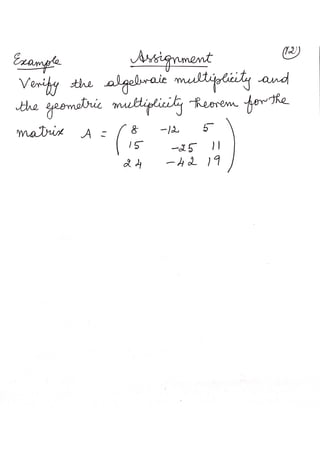 (12)
Example Assignment
Verify the algebraic multiplicity and
the geometric multiplicity theorem for the
matrix A = ( 8 -12 5
15 -25 11
24 -42 19 )